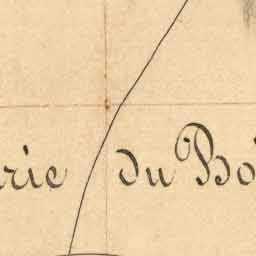 rie du Bo